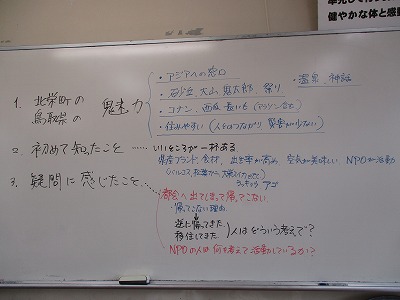 健やかな体と感動
・アジアへの窓口
・砂丘、大山、鬼太郎、祭り
・温泉、神話
1. 北栄町の
鳥取県の
魅力
・コナン、西瓜、長いも
・住みやすい (人とのつながり 災害が少ない)
2. 初めて知ったこと …… いいところが一杯ある
県産ブランド、食材、出生率が高め 空気が美味しい NPOが活動
アゴ
3. 疑問に感じたこと
・都会へ出てしまって帰ってこない
・帰ってこない理由
逆に帰ってきた
移住してきた
人はどういう考えで?
NPOの人は何を考えて活動しているか?